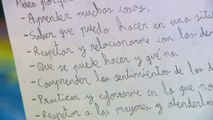 - Aprender muchas cosas.
- Saber que puedo hacer en una situ
- Respetar y relacionarme con los de
- Que se puede hacer y qué no.
- Comprender los sentimientos de los d
- Practicar y esforzarme en lo que no
- Respetar a los mayores y atenderlos